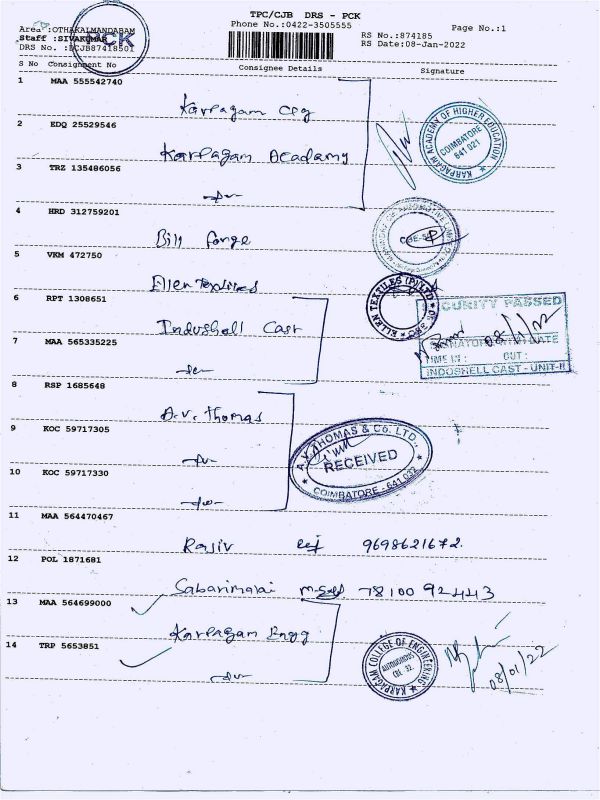 TPC/CJB DRS - PCK
Phone No.:0422-3505555
Page No.:1
Area :OTHAKALMANDABAM
Staff :SIVAKUMAR
DRS No. :DCJB87418501
PCK
RS No.:874185
RS Date:08-Jan-2022
S No Consignment No Consignee Details Signature
1 MAA 555542740
Karpagam Clg
KARPAGAM ACADEMY OF HIGHER EDUCATION
COIMBATORE
641 021
2 EDQ 25529546
Karpagam Acadamy
3 TRZ 135486056
4 HRD 312759201
Bill forge
5 VKM 472750
Ellen Textiles
ELLEN TEXTILES (P) LTD
6 RPT 1308651
Indushell Cast
SECURITY PASSED
7 MAA 565335225
08/1/22
TIME IN : OUT :
INDOSHELL CAST - UNIT-II
8 RSP 1685648
A.V. Thomas
9 KOC 59717305
A.V. THOMAS & CO. LTD.,
RECEIVED
COIMBATORE - 641 032
10 KOC 59717330
11 MAA 564470467
Rajiv 9698621672
12 POL 1871681
Sabarimalai 78100 92443
13 MAA 564699000
Karpagam Engg
14 TRP 5653851
KARPAGAM COLLEGE OF ENGINEERING
AUTONOMOUS
08/01/22